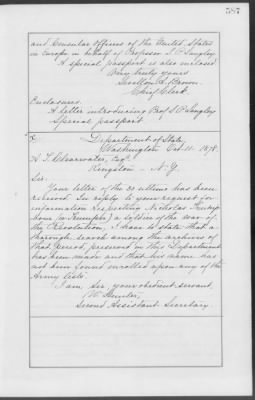 587
and Consular Officers of the United States
in Europe in behalf of Professor S. P. Langley.
A special passport is also inclosed
Very truly yours
Sevellon A. Brown.
Chief Clerk.
Enclosures.
A letter introducing Prof S. P. Langley
Special passport.
Department of State,
Washington Oct. 11. 1878.
A. T. Clearwater, Esq.
Kingston. N. Y.
Sir.
Your letter of the 30 ultimo has been
received. In reply to your request for
information respecting Nicholas Trump
bour (or Trumper) a soldier of the war of
the Revolution, I have to state that a
thorough search among the archives of
that period preserved in this Department
has been made and that his name has
not been found enrolled upon any of the
Army lists.
I am, Sir, your obedient servant,
W. Hunter,
Second Assistant Secretary.